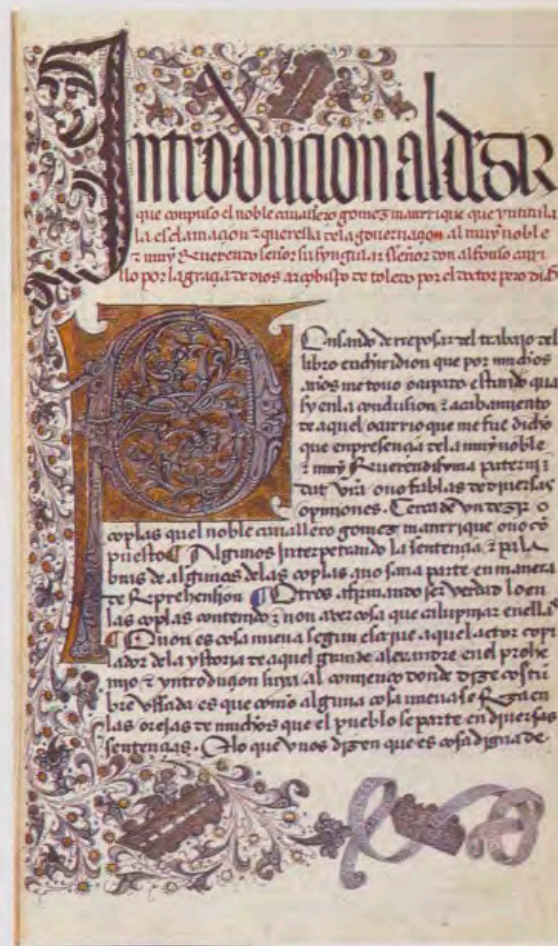 Introducion al dezir
que conpuso el noble cauallero gomez manrrique que yntitula
la esclamaçion z querella dela gouernaçion al muy noble
z muy Reuerendo señor su syngular señor don alfonso carri
llo por la graçia de dios arçobispo de toledo por el doctor pero diaz
Pensando de rreposar del trabajo del
libro enchiridion que por muchos
años me touo ocupado estando qua
sy en la conclusion z acabamiento
de aquel ocurrio que me fue dicho
que en presençia dela muy noble
z muy Reuerendisima paterni
dat vra ouo fablas de diuersas
opiniones. Cerca de vn dezir o
coplas quel noble cauallero gomez manrrique ouo cõ
puesto Algunos Interpetrando la sentençia z pala
bras de algunos delas coplas a no sana parte en manera
de Reprehension Otros afirmando ser verdad lo en
las coplas contenido z non aver cosa que calupniar en ella
E non es cosa nueua segun esto que aquel actor cop
lador dela ystoria de aquel grande alexandre en el prohe
mio z yntroduçion suya al comienço donde dize costũ
bre vssada es que como alguna cosa nueua se Reza en
las orejas de muchos que el pueblo se parte en diuersas
sentençias. Alo que vnos dizen que es cosa digna de